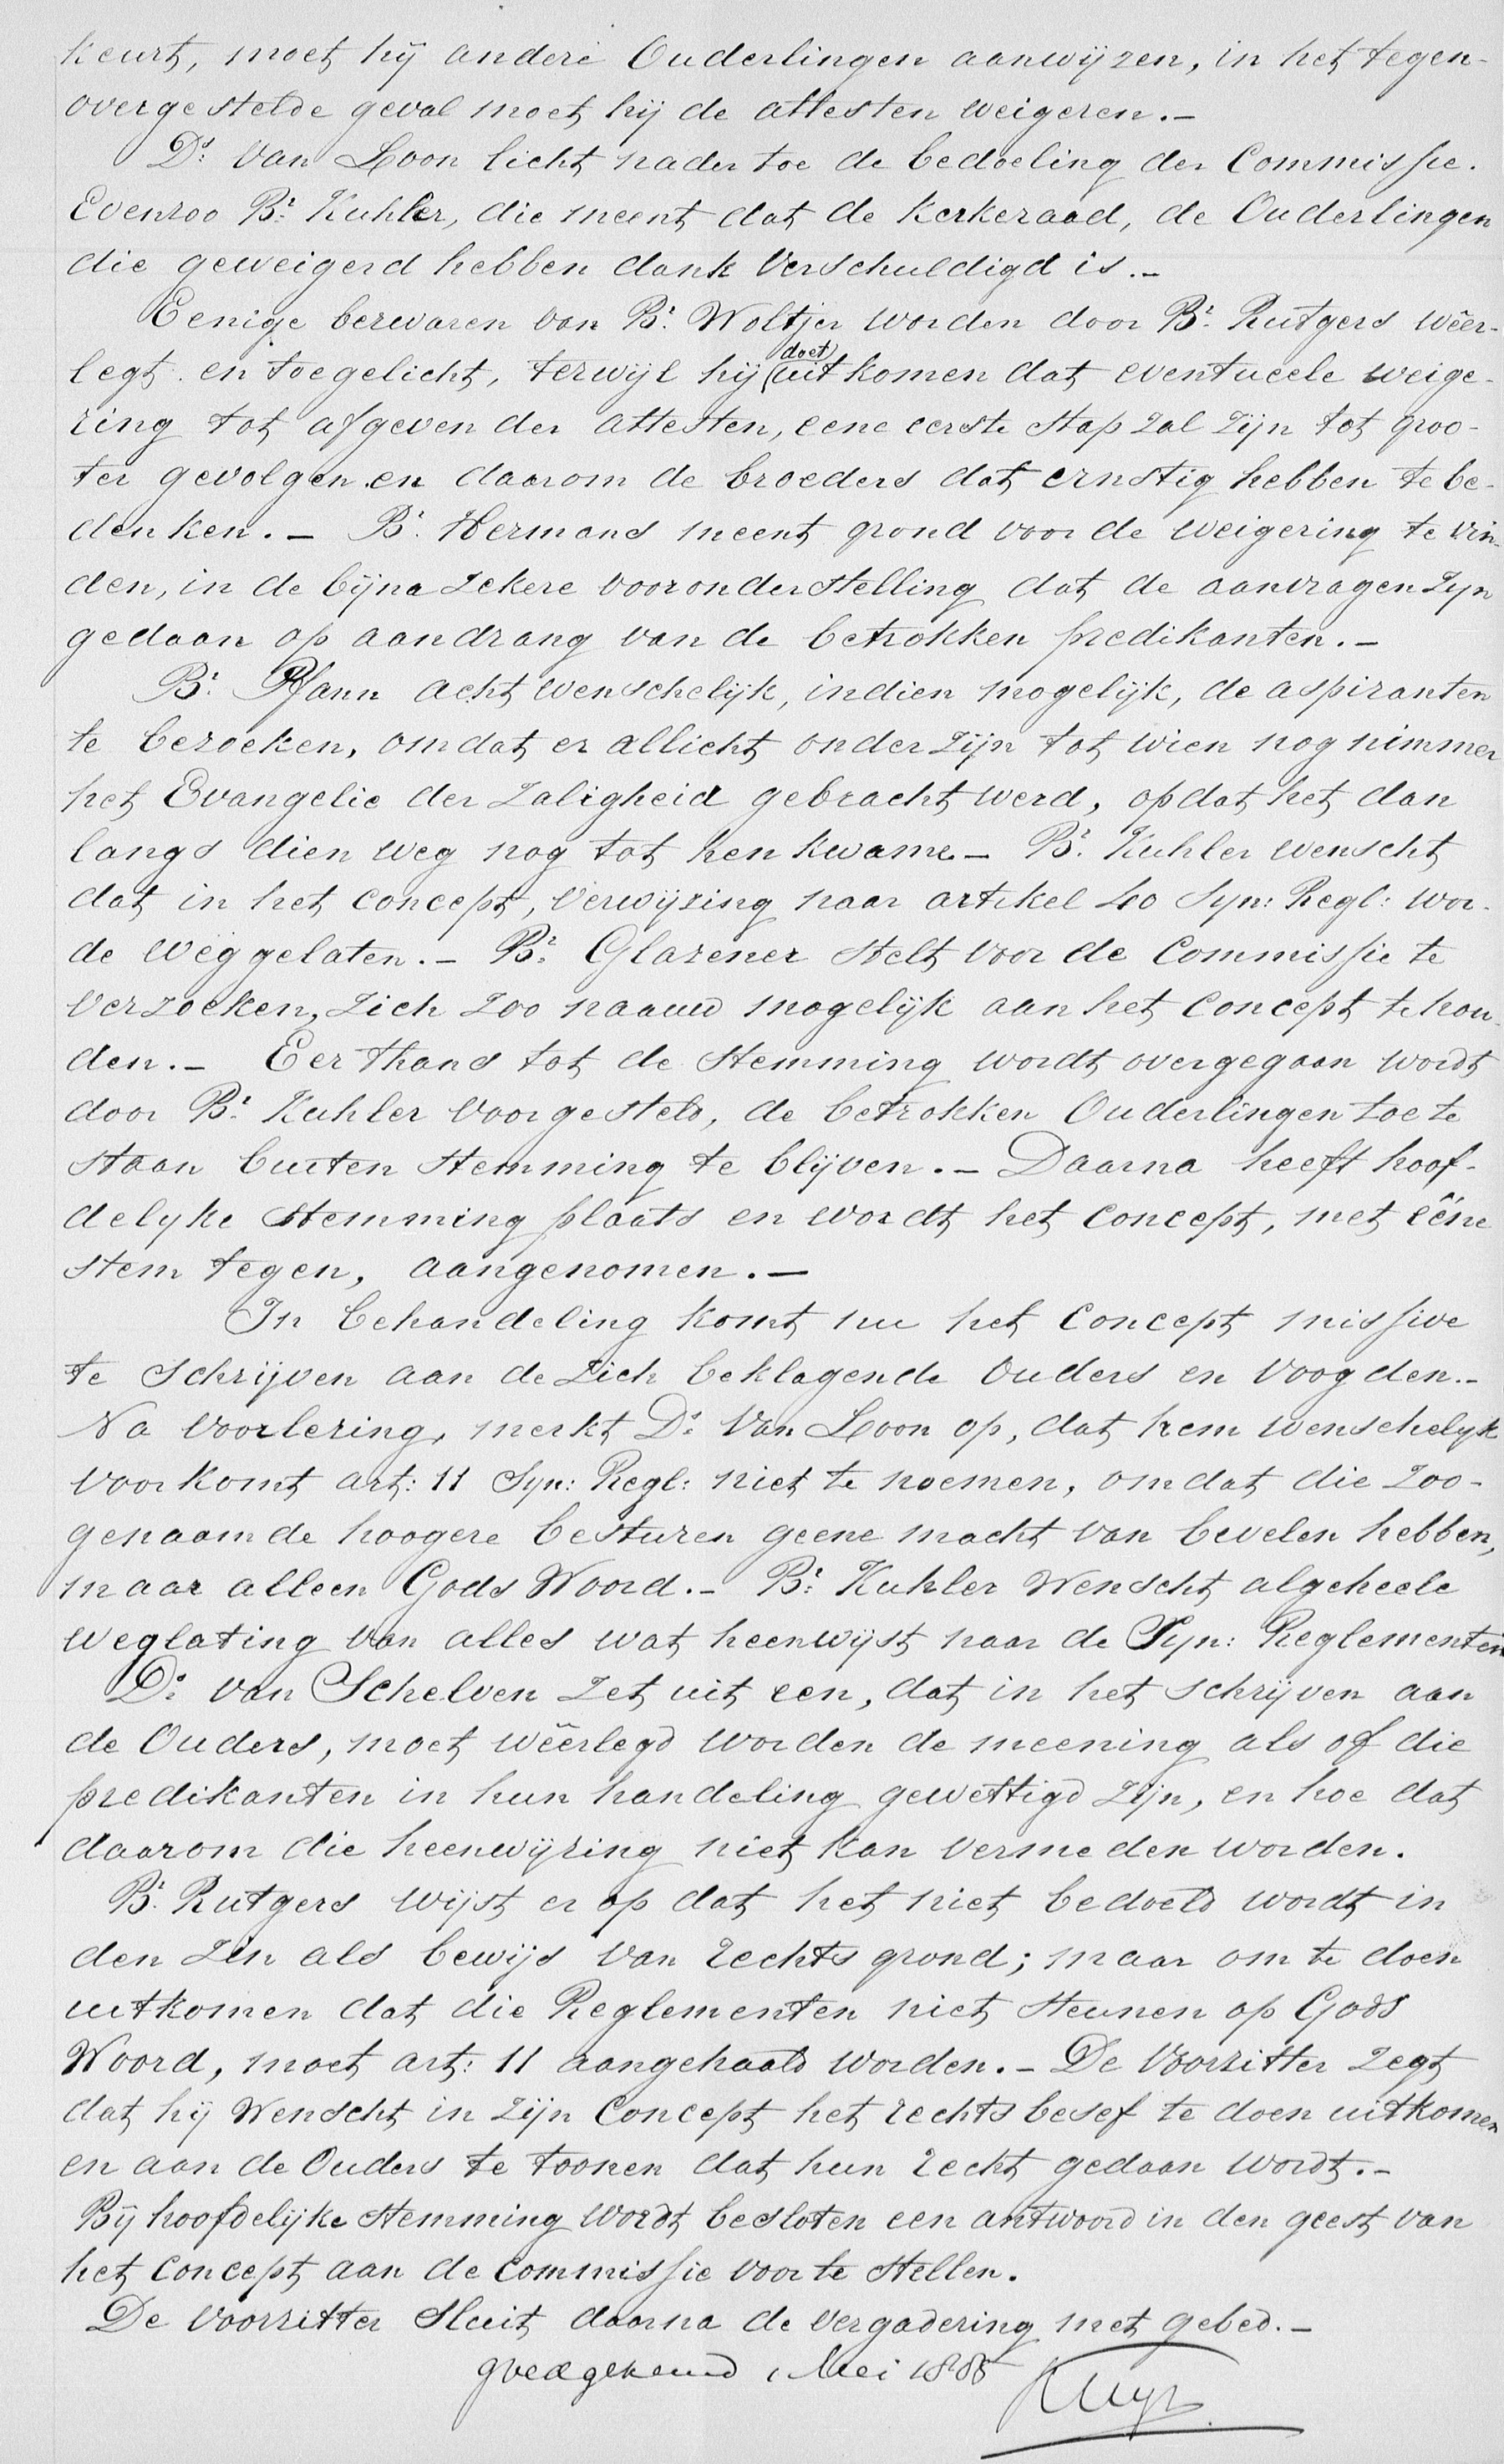 keurt, moet hij andere Ouderlingen aanwijzen, in het tegen-
overgestelde geval moet hij de attesten weigeren.—
Ds. van Loon licht nader toe de bedoeling der Commissie.
Evenzoo Br. Kuhler, die meent dat de kerkeraad, de Ouderlingen
die geweigerd hebben dank verschuldigd is.—
Eenige bezwaren van Br. Woltjer worden door Br. Rutgers wêer-
legt en toegelicht, terwijl hij doet uitkomen dat eventueele weige-
ring tot afgeven der attesten, eene eerste stap zal zijn tot groo-
ter gevolgen en daarom de broeders dat ernstig hebben te be-
denken.— Br. Hermans meent grond voor de weigering te vin-
den, in de bijna zekere vooronderstelling dat de aanvragen zijn
gedaan op aandrang van de betrokken predikanten.—
Br. Pfann acht wenschelijk, indien mogelijk, de aspiranten
te bezoeken, omdat er allicht onder zijn tot wien nog nimmer
het Evangelie der Zaligheid gebracht werd, opdat het dan
langs dien weg nog tot hen kwame.— Br. Kuhler wenscht
dat in het concept, verwijzing naar artikel 40 Syn: Regl: wor-
de weggelaten.— Br. Glazener stelt voor de Commissie te
verzoeken, zich zoo naauw mogelijk aan het concept te hou-
den.— Eer thans tot de stemming wordt overgegaan wordt
door Br. Kuhler voorgesteld, de betrokken Ouderlingen toe te
staan buiten stemming te blijven.— Daarna heeft hoof-
delyke stemming plaats en wordt het concept, met ééne
stem tegen, aangenomen.—
In behandeling komt nu het concept missive
te schrijven aan de zich beklagende Ouders en Voogden.—
Na voorlezing, merkt Ds. van Loon op, dat hem wenschelyk
voorkomt art: 11 Syn: Regl: niet te noemen, omdat die zoo-
genaamde hoogere besturen geene macht van bevelen hebben,
maar alleen Gods Woord.— Br. Kuhler wenscht algeheele
weglating van alles wat heenwijst naar de Syn: Reglementen
Ds. van Schelven zet uit een, dat in het schrijven aan
de Ouders, moet wêerlegd worden de meening als of die
predikanten in hun handeling gewettigd zijn, en hoe dat
daarom die heenwijzing niet kan vermeden worden.
Br. Rutgers wijst er op dat het niet bedoeld wordt in
den zin als bewijs van rechtsgrond; maar om te doen
uitkomen dat die Reglementen niet steunen op Gods
Woord, moet art: 11 aangehaald worden.— De Voorzitter zegt
dat hij wenscht in zijn Concept het rechtsbesef te doen uitkomen
en aan de Ouders te toonen dat hun recht gedaan wordt.—
Bij hoofdelijke stemming wordt besloten een antwoord in den geest van
het concept aan de Commissie voor te stellen.
De Voorzitter sluit daarna de vergadering met gebed.—
goedgekeurd 1 Mei 1885 Kuyper